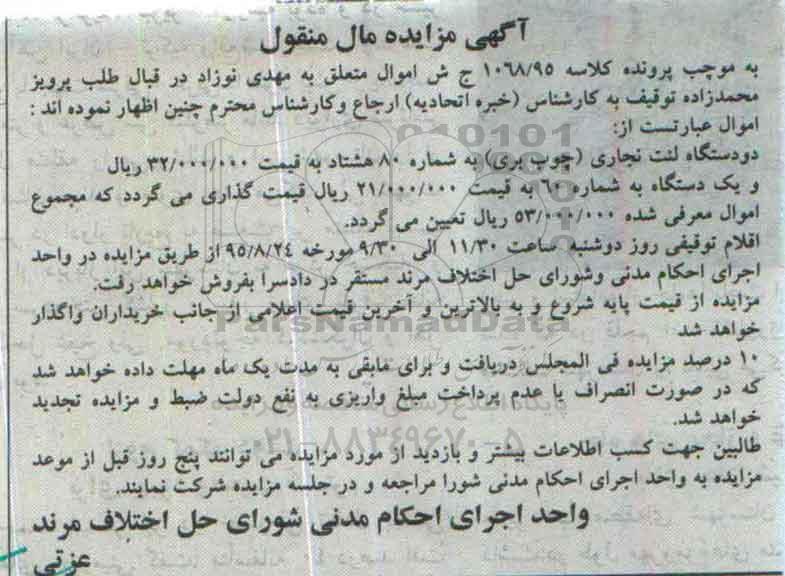 آگهی مزایده مال منقول
به موجب پرونده کلاسه ۱۰۶۸/۹۵ ج ش اموال متعلق به مهدی نوزاد در قبال طلب پرویز
محمدزاده توقیف به کارشناس (خبره اتحادیه) ارجاع وکارشناس محترم چنین اظهار نموده اند :
اموال عبارتست از:
دودستگاه لنت نجاری (چوب بری) به شماره ۸۰ هشتاد به قیمت ۳۲/۰۰۰/۰۰۰ ریال
و یک دستگاه به شماره ۶۰ به قیمت ۲۱/۰۰۰/۰۰۰ ریال قیمت گذاری می گردد که مجموع
اموال معرفی شده ۵۳/۰۰۰/۰۰۰ ریال تعیین می گردد.
اقلام توقیفی روز دوشنبه ساعت ۱۱/۳۰ الی ۹/۳۰ مورخه ۹۵/۸/۲۴ از طریق مزایده در واحد
اجرای احکام مدنی وشورای حل اختلاف مرند مستقر در دادسرا بفروش خواهد رفت.
مزایده از قیمت پایه شروع و به بالاترین و آخرین قیمت اعلامی از جانب خریداران واگذار
خواهد شد
۱۰ درصد مزایده فی المجلس دریافت و برای مابقی به مدت یک ماه مهلت داده خواهد شد
که در صورت انصراف یا عدم پرداخت مبلغ واریزی به نفع دولت ضبط و مزایده تجدید
خواهد شد.
طالبین جهت کسب اطلاعات بیشتر و بازدید از مورد مزایده می توانند پنج روز قبل از موعد
مزایده به واحد اجرای احکام مدنی شورا مراجعه و در جلسه مزایده شرکت نمایند.
واحد اجرای احکام مدنی شورای حل اختلاف مرند
عزتی
ParsNamadData
۰۲۱-۸۸۳۴۹۶۷۰-۵